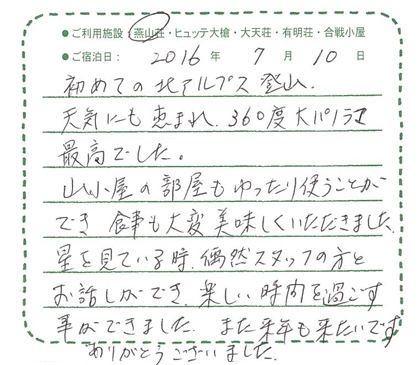 ●ご利用施設：燕山荘・ヒュッテ大槍・大天荘・有明荘・合戦小屋
●ご宿泊日： 2016年 7月 10日
初めての北アルプス登山.
天気にも恵まれ、360度大パノラマ
最高でした。
山小屋の部屋もゆったり使うことが
でき 食事も大変美味しくいただきました.
星を見ている時、偶然スタッフの方と
お話しができ、楽しい時間を過ごす
事ができました. また来年も来たいです
ありがとうございました.